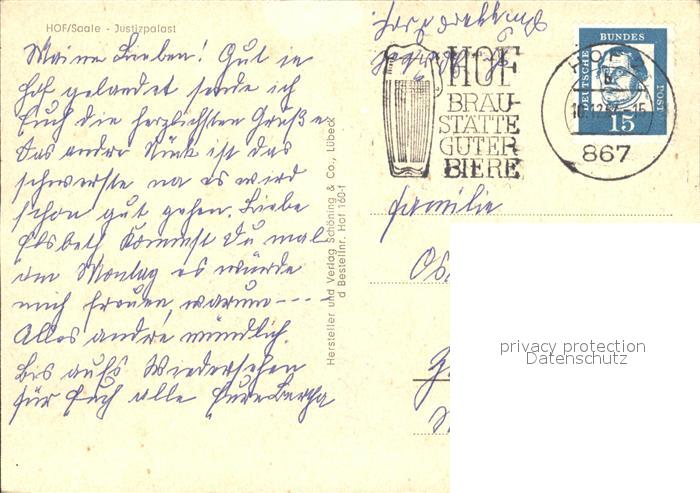 HOF/Saale - Justizpalast
Meine Lieben! Gut in
Hof gelandet sende ich
Euch die herzlichsten Grüße
Das andre Stück ist das
schwerste na es wird
schon gut gehen. Liebe
Elsbeth kommst Du mal
am Montag es würde
mich freuen, warum ----
Alles andre mündlich.
Bis aufs Wiedersehen
für Euch alle Eure Bertha
Hersteller und Verlag Schöning & Co., Lübeck
d Bestellnr. Hof 160-f
HOF
BRAU-
STÄTTE
GUTER
BIERE
HOF
867
DEUTSCHE
BUNDES
POST
15
Familie
privacy protection
Datenschutz